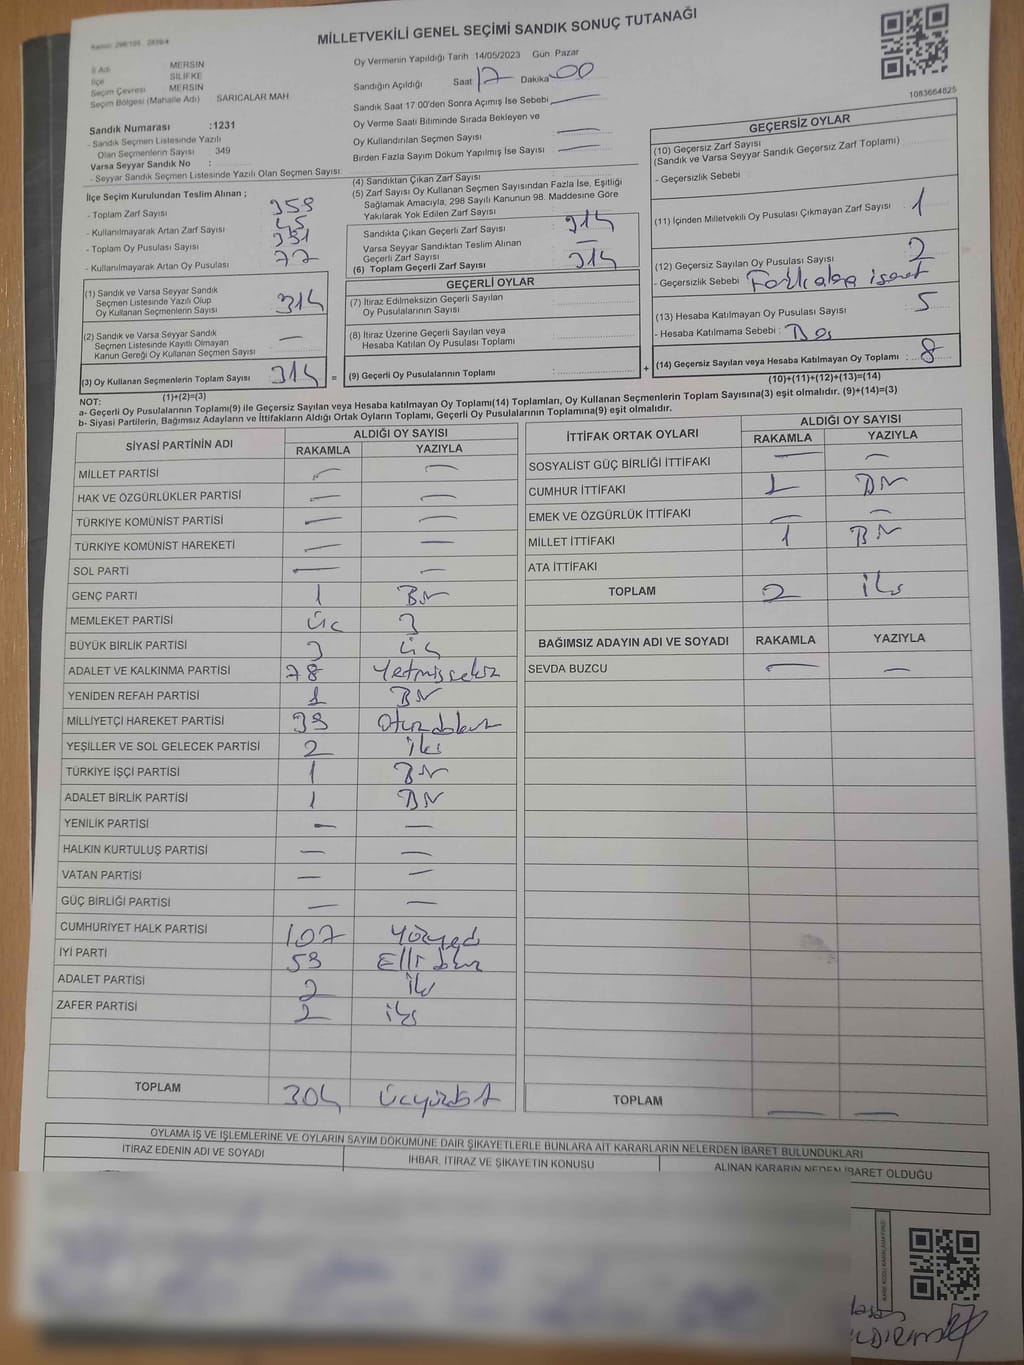 MİLLETVEKİLİ GENEL SEÇİMİ SANDIK SONUÇ TUTANAĞI
1083664625
İl Adı MERSİN
İlçe SİLİFKE
Seçim Çevresi MERSİN
Seçim Bölgesi (Mahalle Adı) SARICALAR MAH
Sandık Numarası :1231
- Sandık Seçmen Listesinde Yazılı
Olan Seçmenlerin Sayısı : 349
Varsa Seyyar Sandık No :
- Seyyar Sandık Seçmen Listesinde Yazılı Olan Seçmen Sayısı:
Oy Vermenin Yapıldığı Tarih :14/05/2023 Gün: Pazar
Sandığın Açıldığı Saat 17 Dakika 00
Sandık Saat 17:00'den Sonra Açımış İse Sebebi
Oy Verme Saati Bitiminde Sırada Bekleyen ve
Oy Kullandırılan Seçmen Sayısı
Birden Fazla Sayım Döküm Yapılmış İse Sayısı
İlçe Seçim Kurulundan Teslim Alınan ;
- Toplam Zarf Sayısı : 359
- Kullanılmayarak Artan Zarf Sayısı : 45
- Toplam Oy Pusulası Sayısı : 391
- Kullanılmayarak Artan Oy Pusulası : 77
(1) Sandık ve Varsa Seyyar Sandık
Seçmen Listesinde Yazılı Olup
Oy Kullanan Seçmenlerin Sayısı : 314
(2) Sandık ve Varsa Seyyar Sandık
Seçmen Listesinde Kayıtlı Olmayan
Kanun Gereği Oy Kullanan Seçmen Sayısı :
(3) Oy Kullanan Seçmenlerin Toplam Sayısı 314
(1)+(2)=(3)
(4) Sandıktan Çıkan Zarf Sayısı
(5) Zarf Sayısı Oy Kullanan Seçmen Sayısından Fazla İse, Eşitliği
Sağlamak Amacıyla, 298 Sayılı Kanunun 98. Maddesine Göre
Yakılarak Yok Edilen Zarf Sayısı
Sandıkta Çıkan Geçerli Zarf Sayısı : 314
Varsa Seyyar Sandıktan Teslim Alınan
Geçerli Zarf Sayısı
(6) Toplam Geçerli Zarf Sayısı : 314
GEÇERLİ OYLAR
(7) İtiraz Edilmeksizin Geçerli Sayılan
Oy Pusulasının Sayısı
(8) İtiraz Üzerine Geçerli Sayılan veya
Hesaba Katılan Oy Pusulası Toplamı
= (9) Geçerli Oy Pusulalarının Toplamı +
GEÇERSİZ OYLAR
(10) Geçersiz Zarf Sayısı
(Sandık ve Varsa Seyyar Sandık Geçersiz Zarf Toplamı)
- Geçersizlik Sebebi :
(11) İçinden Milletvekili Oy Pusulası Çıkmayan Zarf Sayısı : 1
(12) Geçersiz Sayılan Oy Pusulası Sayısı : 2
- Geçersizlik Sebebi : işaret
(13) Hesaba Katılmayan Oy Pusulası Sayısı : 5
- Hesaba Katılmama Sebebi : Boş
(14) Geçersiz Sayılan veya Hesaba Katılmayan Oy Toplamı : 8
(10)+(11)+(12)+(13)=(14)
NOT:
a- Geçerli Oy Pusulalarının Toplamı(9) ile Geçersiz Sayılan veya Hesaba katılmayan Oy Toplamı(14) Toplamları, Oy Kullanan Seçmenlerin Toplam Sayısına(3) eşit olmalıdır. (9)+(14)=(3)
b- Siyasi Partilerin, Bağımsız Adayların ve İttifakların Aldığı Ortak Oyların Toplamı, Geçerli Oy Pusulalarının Toplamına(9) eşit olmalıdır.
SİYASİ PARTİNİN ADI ALDIĞI OY SAYISI
RAKAMLA YAZIYLA
MİLLET PARTİSİ
HAK VE ÖZGÜRLÜKLER PARTİSİ
TÜRKİYE KOMÜNİST PARTİSİ
TÜRKİYE KOMÜNİST HAREKETİ
SOL PARTİ
GENÇ PARTİ 1 Bir
MEMLEKET PARTİSİ üç 3
BÜYÜK BİRLİK PARTİSİ 3 üç
ADALET VE KALKINMA PARTİSİ 78 Yetmişsekiz
YENİDEN REFAH PARTİSİ 1 Bir
MİLLİYETÇİ HAREKET PARTİSİ 39 Otuzdokuz
YEŞİLLER VE SOL GELECEK PARTİSİ 2 iki
TÜRKİYE İŞÇİ PARTİSİ 1 Bir
ADALET BİRLİK PARTİSİ 1 Bir
YENİLİK PARTİSİ
HALKIN KURTULUŞ PARTİSİ
VATAN PARTİSİ
GÜÇ BİRLİĞİ PARTİSİ
CUMHURİYET HALK PARTİSİ 107 Yüzyedi
İYİ PARTİ 59 Elli dokuz
ADALET PARTİSİ 2 iki
ZAFER PARTİSİ 2 iki
TOPLAM 304 üçyüzdört
İTTİFAK ORTAK OYLARI ALDIĞI OY SAYISI
RAKAMLA YAZIYLA
SOSYALİST GÜÇ BİRLİĞİ İTTİFAKI
CUMHUR İTTİFAKI 1 Bir
EMEK VE ÖZGÜRLÜK İTTİFAKI
MİLLET İTTİFAKI 1 Bir
ATA İTTİFAKI
TOPLAM 2 iki
BAĞIMSIZ ADAYIN ADI VE SOYADI RAKAMLA YAZIYLA
SEVDA BUZCU
TOPLAM
OYLAMA İŞ VE İŞLEMLERİNE VE OYLARIN SAYIM DÖKÜMÜNE DAİR ŞİKAYETLERLE BUNLARA AİT KARARLARIN NELERDEN İBARET BULUNDUKLARI
İTİRAZ EDENİN ADI VE SOYADI İHBAR, İTİRAZ VE ŞİKAYETİN KONUSU ALINAN KARARIN NEDEN İBARET OLDUĞU